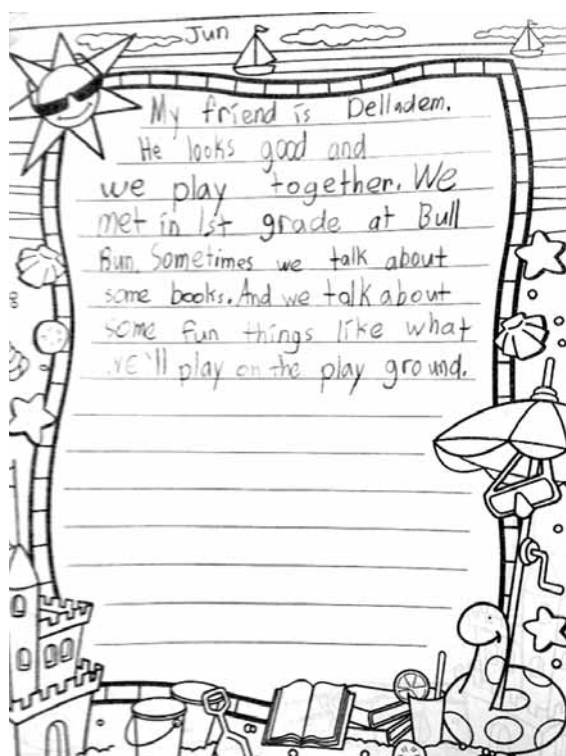 Jun
My friend is Delladem.
He looks good and
we play together. We
met in 1st grade at Bull
Run. Sometimes we talk about
some books. And we talk about
some fun things like what
we'll play on the play ground.